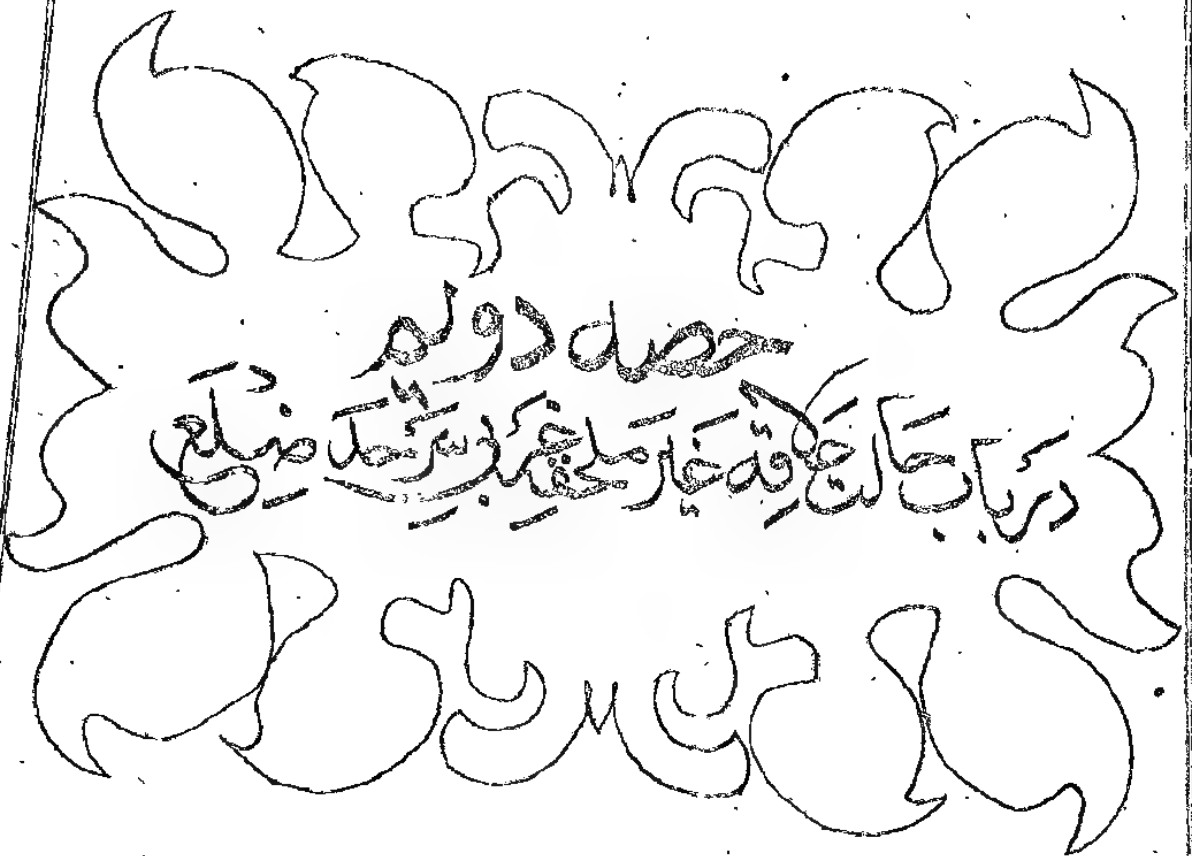 حصہ دوئم
در باب حالات علاقہ غیر ملحقہ غربی سرحد ضلع